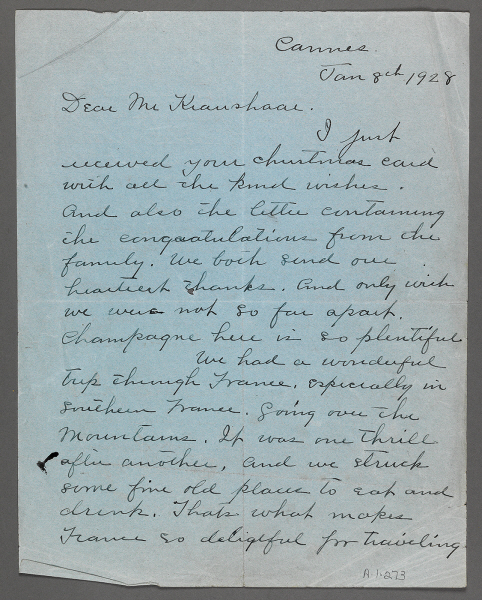 Cannes.
Jan 8th, 1928
Dear Mr Kraushaar.
I just
received your christmas card
with all the kind wishes.
And also the letter containing
the congratulations from the
family. We both send our
heartiest thanks. And only wish
we were not so far apart.
Champagne here is so plentiful
We had a wonderful
trip through France, especially in
Southern France. Going over the
Mountains. It was one thrill
after another, and we struck
some fine old places to eat and
drink. Thats what makes
France so deligtful for traveling
A.1.273